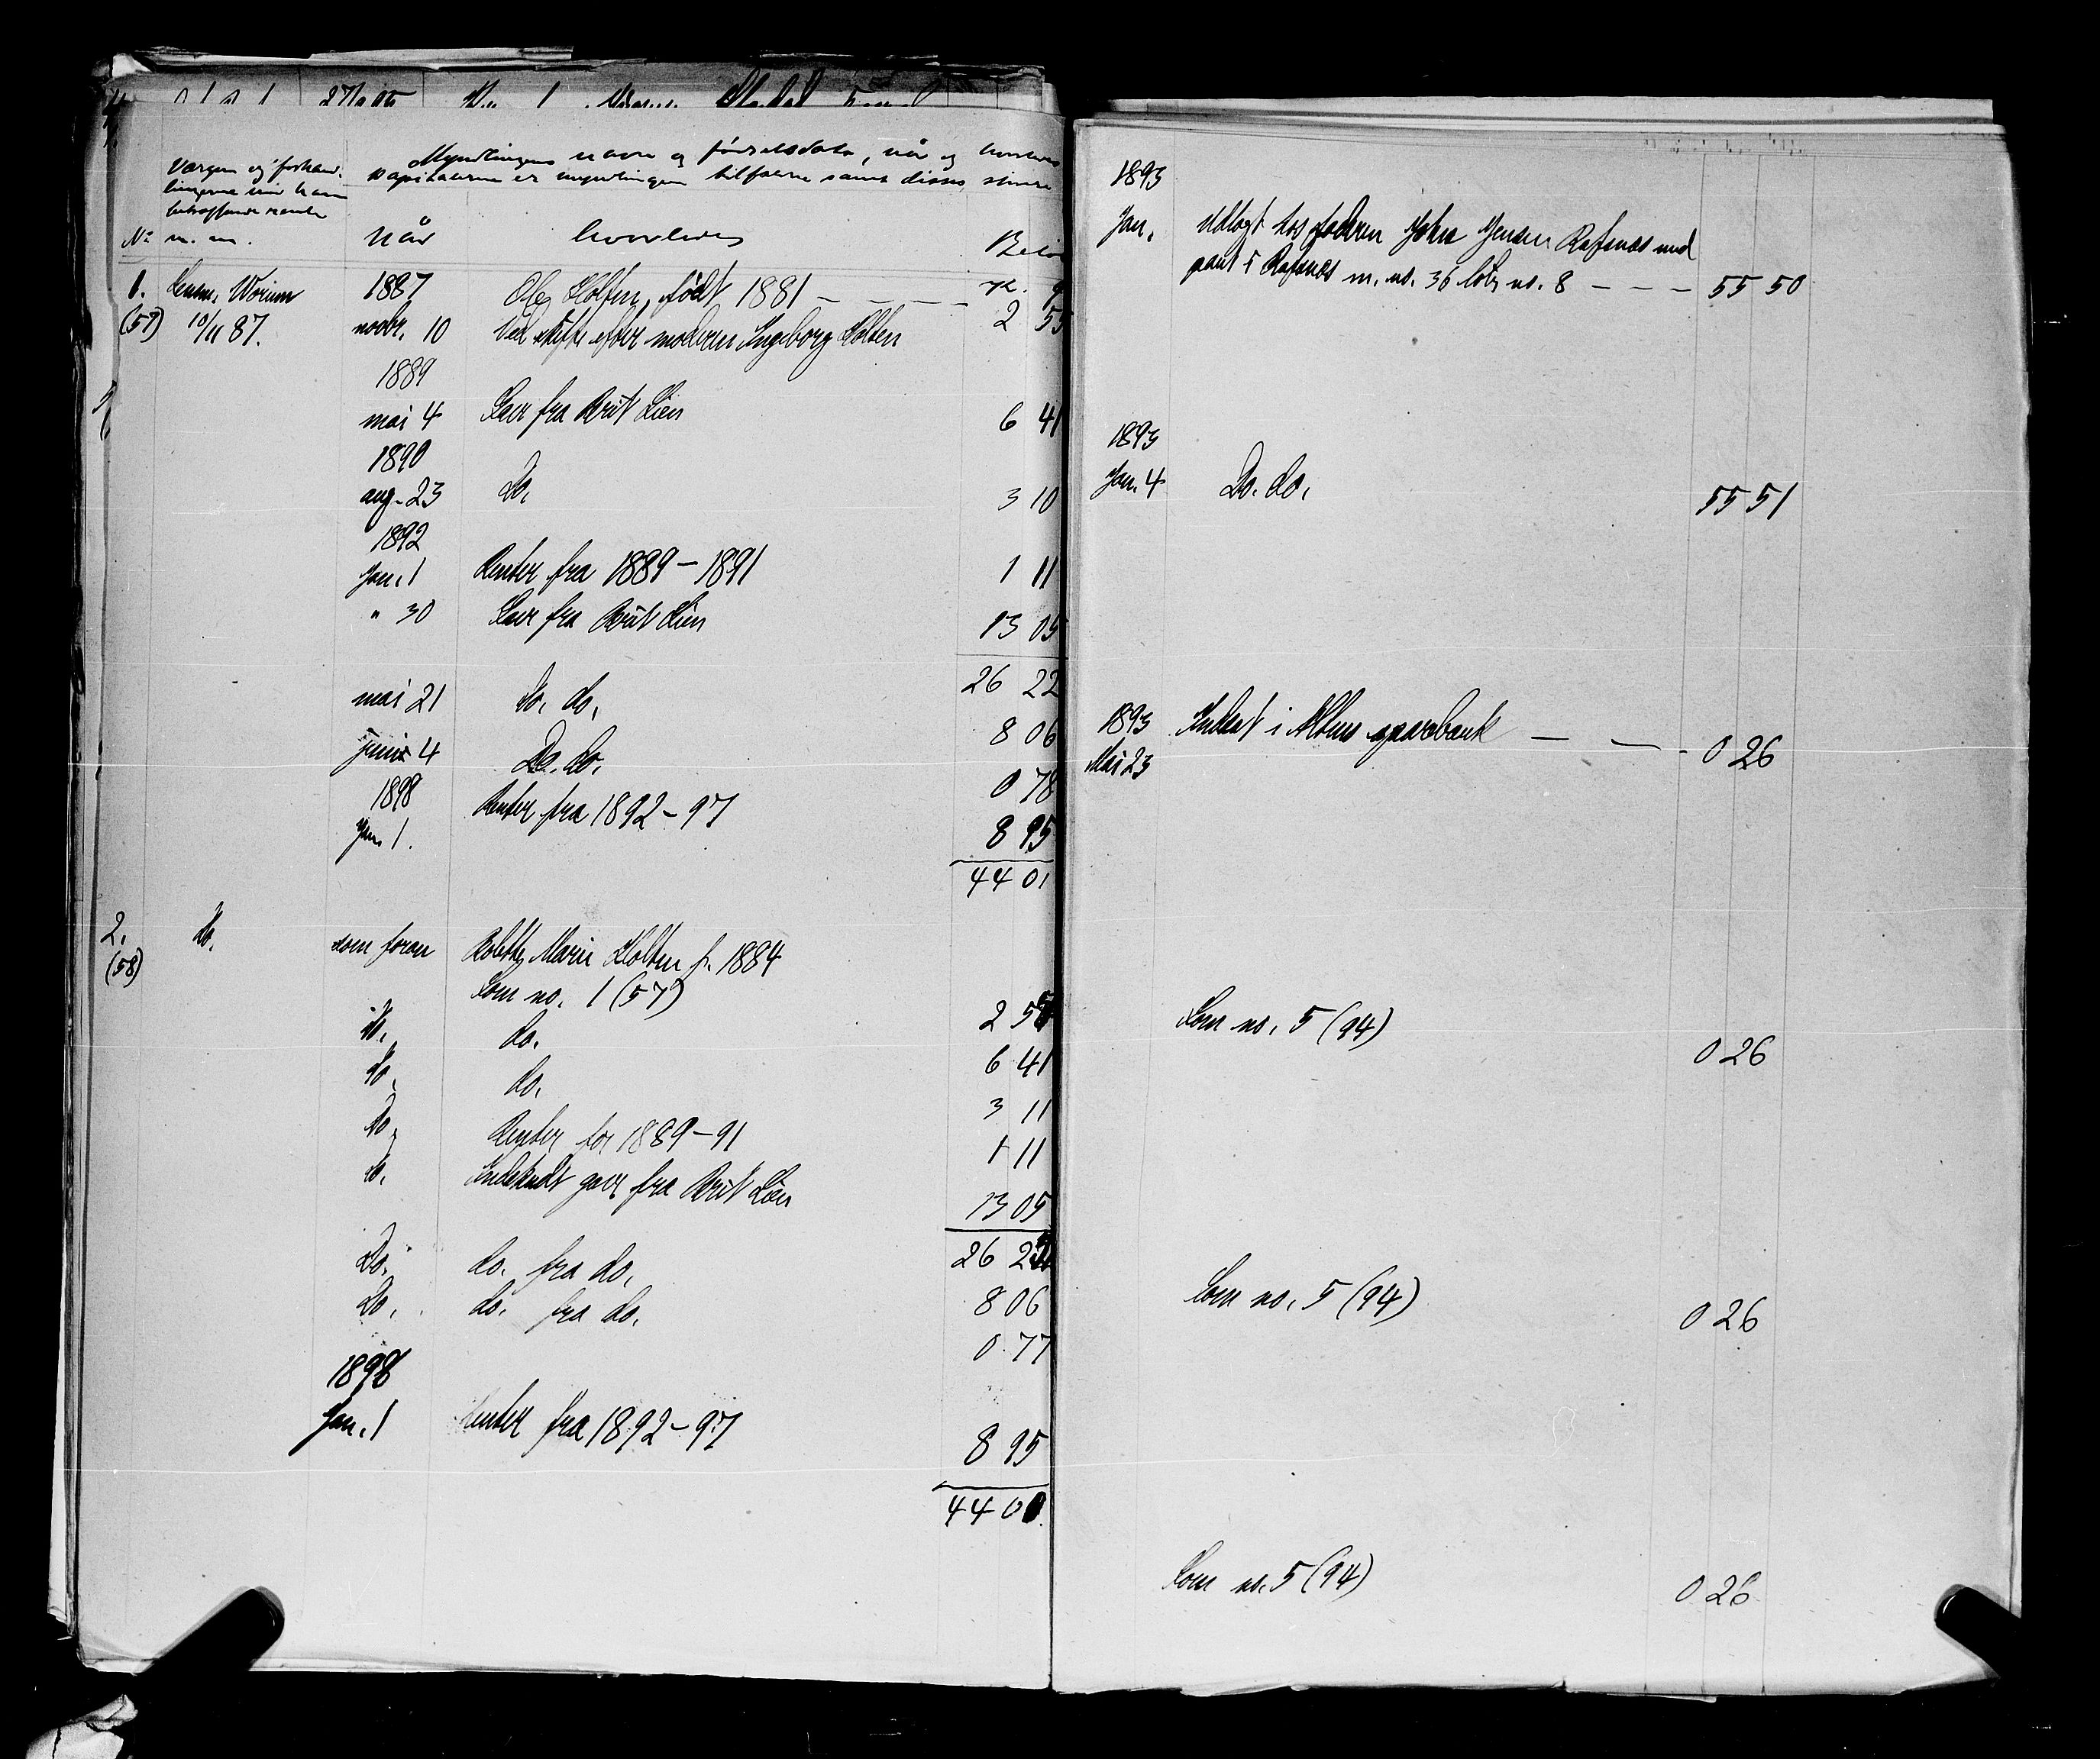 Myndlingens navn og fødselsdato, når og hvorledes
Værgen og forhand-
kapitalerne er myndlingen tilfaldne samt disses større
lingerne med ham
betræffende
No m. m. når hvorledes Beløb
1. Worum 1887 Ole Holten, født 1881 — — —
(57) 10/11 87. novbr. 10 Ved skifte efter moderen Ingeborg Holten 2 55
1889
mai 4 Gave fra Brit Lien 6 41
1890
aug. 23 Do. 3 10
1892
Jan. 1 Renter fra 1889 – 1891 1 11
" 30 Gave fra Brit Lien 13 05
26 22
mai 21 Do. do. 8 06
juni 4 Do. do. 0 78
1898
Jan. 1. Renter fra 1892 – 97 8 95
44 01
2. Do. som foran Marie Holten f. 1884
(58) Som no. 1 (57) 2 55
Do. do. 6 41
do. do. 3 11
Do. Renter for 1889 – 91 1 11
do. gave fra Brit Lien 13 05
26 23
Do. do. fra do. 8 06
Do. do. fra do. 0 77
1898
Jan. 1 Renter fra 1892 – 97 8 95
44 01
1893
Jan. Udlagt hos faderen John Jensen Rafsnæs med
pant i Rafsnæs m. no. 36 løb. no. 8 — — — 55 50
1893
Jan. 4 Do. do. 55 51
1893 Indsat i Altens sparebank — — 0 26
Mai 23
Som no. 5 (94)
0 26
Som no. 5 (94)
0 26
Som no. 5 (94)
0 26